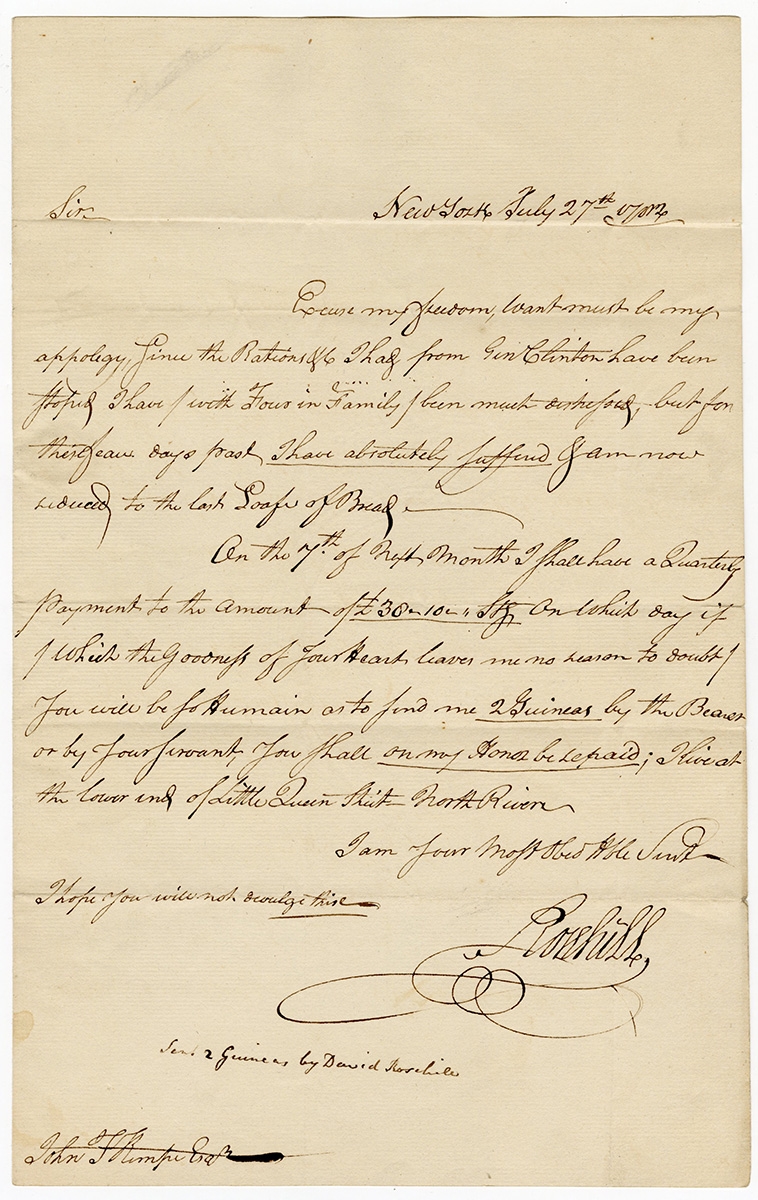 Sir
New York July 27th 1782
Excuse my freedom, Want must be my
appolegy, Since the Rations &c I had from Gen Clinton have been
stoped I have / with Four in Family / been much distressed, but for
these feaw days past I have absolutely suffered & am now
reduced to the last Loafe of Bread.
On the 7th of Next Month I shall have a Quarterly
payment to the amount of £38 - 10 - " Stg, On Which day if
/ Which the Goodness of Your Heart leaves me no reason to doubt /
You will be so Humain as to send me 2 Guineas by the Bearer
or by Your Servant, You shall on my Honor be repaid; I live at
the lower end of Little Queen Street North River
I am Your Most Obed Hble Servt
I hope You will not devulge this
Rosehill
Sent 2 Guineas by David Rosehill
John T Kempe Esqr